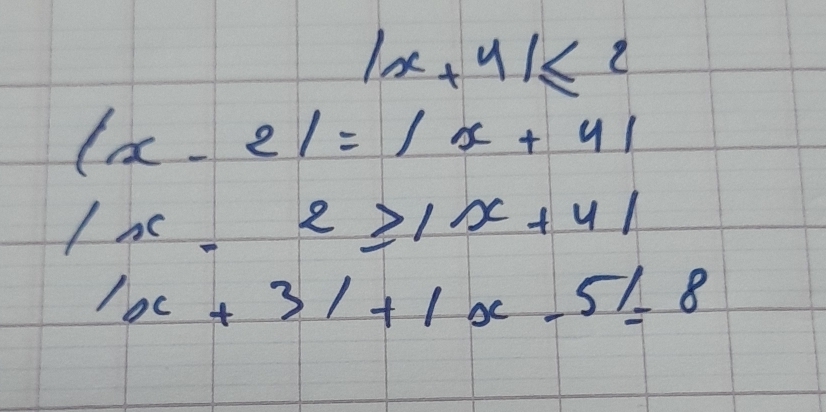 |x + 4| ≤ 2
|x - 2| = |x + 4|
|x - 2 ≥ |x + 4|
|x + 3| + |x - 5| = 8